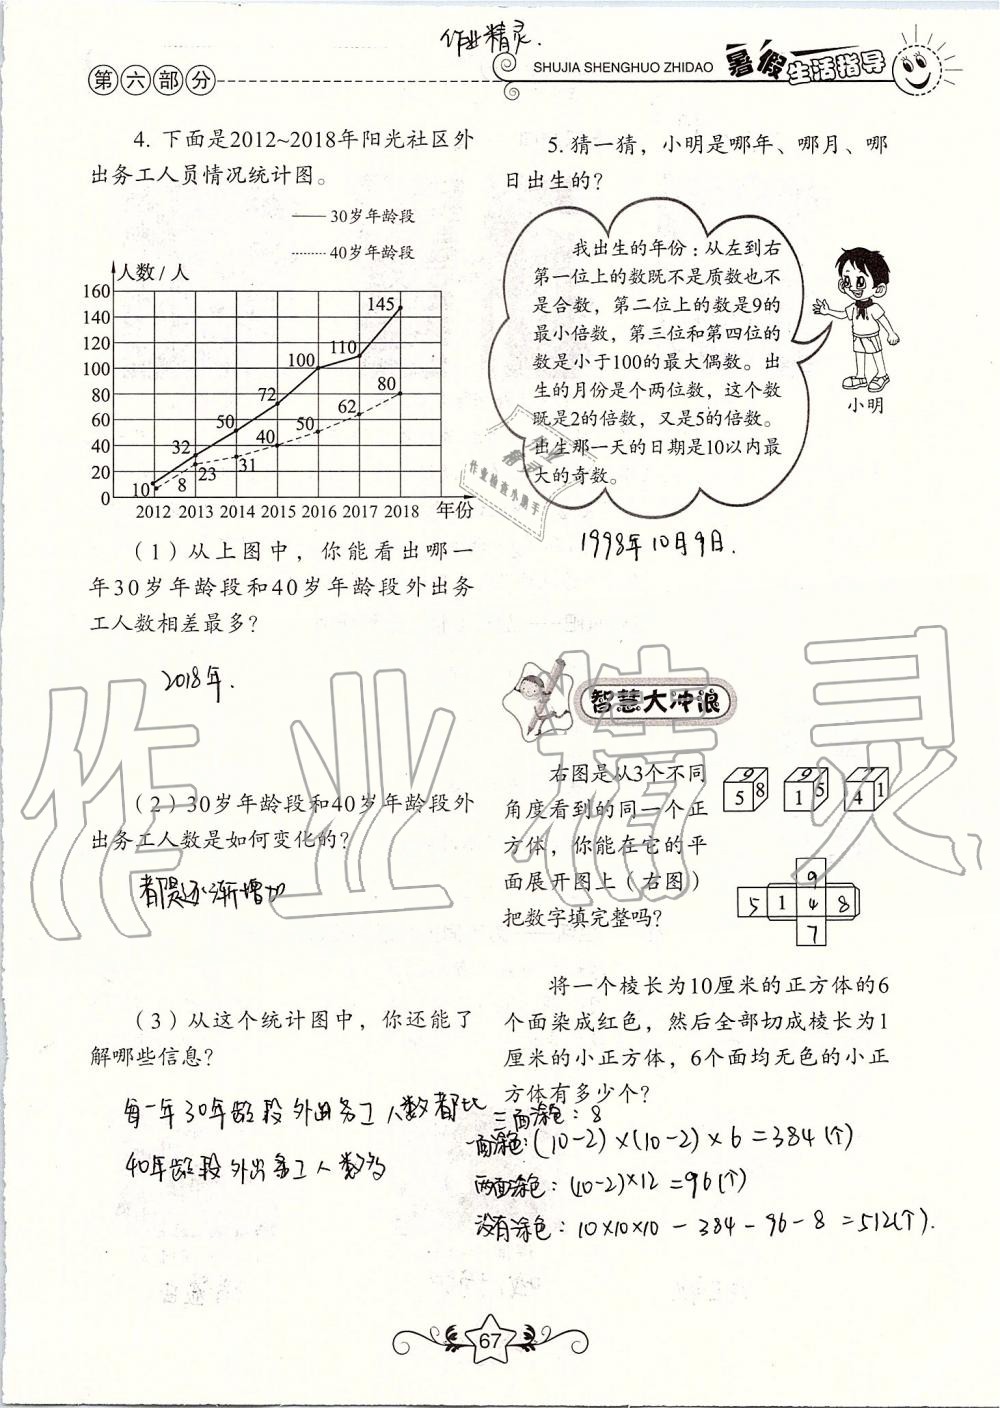 作业精灵.
第六部分
SHUJIA SHENGHUO ZHIDAO
暑假生活指导
4. 下面是2012~2018年阳光社区外
出务工人员情况统计图。
30岁年龄段
40岁年龄段
人数/人
160
140
120
100
80
60
40
20
0
10 32 50 72 100 110 145
8 23 31 40 50 62 80
2012 2013 2014 2015 2016 2017 2018 年份
（1）从上图中，你能看出哪一
年30岁年龄段和40岁年龄段外出务
工人数相差最多？
2018年.
（2）30岁年龄段和40岁年龄段外
出务工人数是如何变化的？
都是逐渐增加
（3）从这个统计图中，你还能了
解哪些信息？
每一年30年龄段外出务工人数都比
40年龄段外出务工人数多
5. 猜一猜，小明是哪年、哪月、哪
日出生的？
我出生的年份：从左到右
第一位上的数既不是质数也不
是合数，第二位上的数是9的
最小倍数，第三位和第四位的
数是小于100的最大偶数。出
生的月份是个两位数，这个数
既是2的倍数，又是5的倍数。
出生那一天的日期是10以内最
大的奇数。
小明
作业检查小助手
1998年10月9日.
智慧大冲浪
右图是从3个不同
角度看到的同一个正
方体，你能在它的平
面展开图上（右图）
把数字填完整吗？
9 5 8
9 1 5
7 4 1
9
5 1 4 8
7
将一个棱长为10厘米的正方体的6
个面染成红色，然后全部切成棱长为1
厘米的小正方体，6个面均无色的小正
方体有多少个？
三面涂色：8
一面涂色：(10-2)×(10-2)×6=384(个)
两面涂色：(10-2)×12=96(个)
没有涂色：10×10×10-384-96-8=512(个).
作业精灵
67